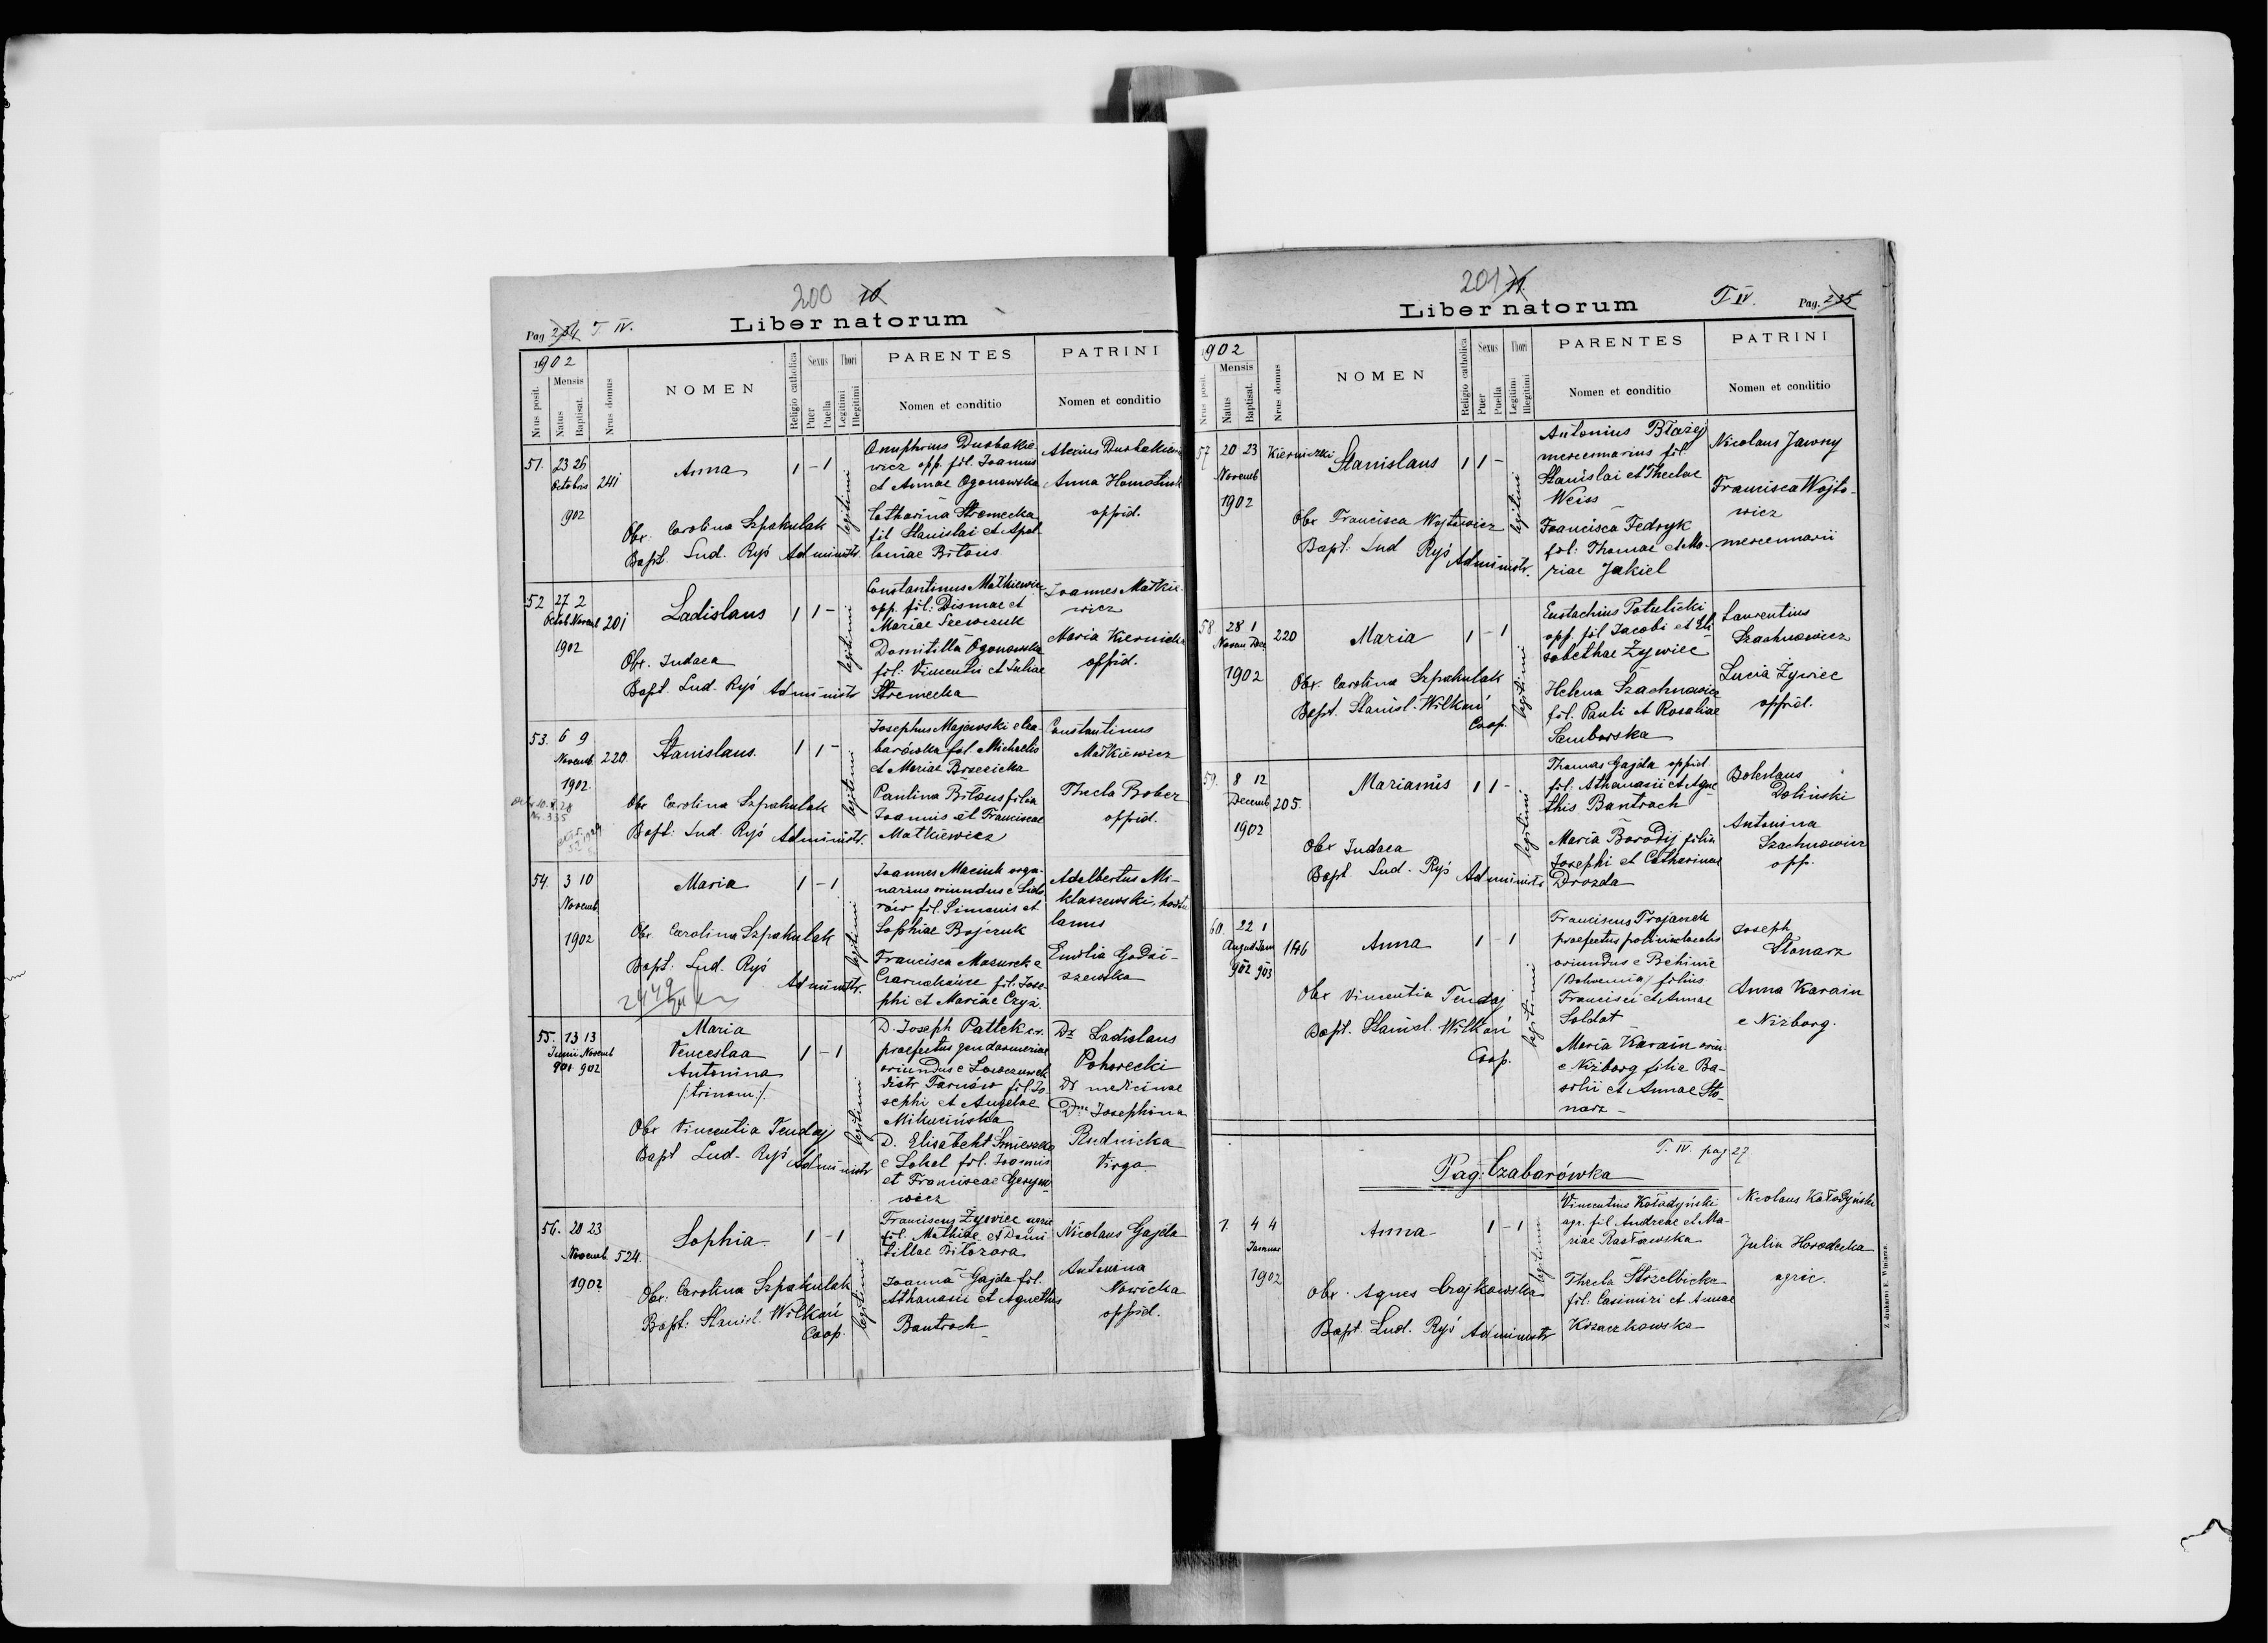 200 10
Pag. 234 T IV.
Liber natorum
1902
Nrus posit.
Mensis
Natus
Baptisat.
Nrus domus
NOMEN
Religio catholica
Sexus
Puer
Puella
Thori
Legitimi
Illegitimi
PARENTES
Nomen et conditio
PATRINI
Nomen et conditio
51. 23 26
Octobris
1902
241
Anna
1 - 1
legitimi
Obx. Carolina Szpakulak
Bapt. Lud. Ryś Administr.
Onuphrius Dusbakie-
wicz opp. fil. Joannis
et Annae Ogonowska
Catharina Stremecka
fil Stanislai et Apol-
loniae Bitous
Alexius
Anna
oppid.
52 27 2
Octob Novemb
1902
201
Ladislaus
1 1 -
legitimi
Obx. Judaea
Bapt. Lud. Ryś Administr
Constantinus Matkiewicz
opp. fil: Dismae et
Mariae Szewczuk
Domitilla Ogonowska
fil: Vincentii et Juliae
Stremecka
Joannes Matkie-
wicz
Maria Kiernicka
oppid.
53. 6 9
Novemb.
1902.
220.
Stanislaus.
1 1 -
legitimi
Obx Carolina Szpakulak
Bapt: Lud. Ryś Administr.
Josephus Majewski e Cza-
barówka fil. Michaelis
et Mariae Brzezicka
Paulina Bitous filia
Joannis et Franciscae
Matkiewicz
Constantinus
Matkiewicz
Thecla Bober
oppid.
54. 3 10
Novemb.
1902
Maria
1 - 1
legitimi
Obx Carolina Szpakulak
Bapt: Lud. Ryś
Administr.
Joannes Maciuk orga-
narius oriundus e Sido-
rów fil. Simonis et
Sophiae Bojczuk
Francisca Mazurek e
fil: Jose-
phi et Mariae Czyż.
Adalbertus Mi-
klaszewski,
Emilia Godzi-
szewska
55. 13 13
Junii Novemb
901 902
Maria
Venceslaa
Antonina
/:trinom:/.
1 - 1
legitimi
Obx Vincentia Tendaj
Bapt Lud. Ryś Administr
D. Joseph Pattek c.r.
praefectus gendarmeriae
oriundus e Lowczówek
distr Tarnów fil Jo-
sephi et Angelae
Mikucińska
D. Elisabeht
e Sokal fil. Joannis
et Franciscae Gerym-
wicz
Dr Ladislaus
Pohorecki
Dr medicinae
Dna Josephina
Rudnicka
Virgo
56. 20 23
Novemb.
1902
524.
Sophia.
1 - 1
legitimi
Obx: Carolina Szpakulak
Bapt: Stanisl. Wilkoń
Coop.
Franciscus Żywiec
fil. Mathiae et Domi-
tillae
Joanna Gajda fil.
Athanasii et Agnethis
Bantroch
Nicolaus Gajda
Antonina
Nowicka
oppid.
201 11.
Liber natorum
T IV. Pag. 235
1902
Nrus posit.
Mensis
Natus
Baptisat.
Nrus domus
NOMEN
Religio catholica
Sexus
Puer
Puella
Thori
Legitimi
Illegitimi
PARENTES
Nomen et conditio
PATRINI
Nomen et conditio
57 20 23
Novemb
1902
Kierniczki
Stanislaus
1 1 -
legitimi
Obx Francisca Wojtowicz
Bapt: Lud Ryś Administr.
Antonius Błażej
mercennarius fil.
Stanislai et Theclae
Weiss
Francisca Fedryk
fil: Thomae et Ma-
riae Jakiel
Nicolaus Jawny
Francisca Wojto-
wicz
mercennarii
58. 28 1
Novem Dec.
1902
220
Maria
1 - 1
legitimi
Obx. Carolina Szpakulak
Bapt. Stanisl. Wilkoń
Coop.
Eustachius Potulicki
opp. fil Jacobi et Eli-
sabethae Żywiec
Helena Szachnowicz
fil. Pauli et Rosaliae
Samborska
Laurentius
Szachnowicz
Lucia Żywiec
oppid.
59. 8 12
Decemb
1902
205.
Mariamis
1 1 -
legitimi
Obx Judaea
Bapt Lud. Ryś Administr
Thomas Gajda oppid.
fil: Athanasii et Agne-
this Bantroch
Maria Borodij filia
Josephi et Catharinae
Drozda
Boleslaus
Doliński
Antonina
Szachnowicz
opp.
60. 22 1
August Jan
902 903
1146
Anna
1 - 1
legitimi
Obx Vincentia Tendaj
Bapt. Stanisl. Wilkoń
Coop.
Franciscus Trojanek
praefectus
oriundus e Bechinie
(Bohemia) filius
Francisci et Annae
Soldat
Maria Karain oriun.
e Niżborg filia Ba-
silii et Annae Sto-
narz -
Joseph
Stonarz
Anna Karain
e Nizborg.
T. IV. pag 27.
Pag: Czabarówka
1. 4 4
Januar
1902
Anna
1 - 1
legitimi
Obx. Agnes Czajkowska
Bapt. Lud. Ryś Administr
Vincentius Kołodyński
agr. fil Andreae et Ma-
riae Rasławska
Thecla Strzelbicka
fil: Casimiri et Annae
Krzaczkowska
Nicolaus Kołodyński
Julia Horodecka
agric.
Z drukarni E. Winiarza.